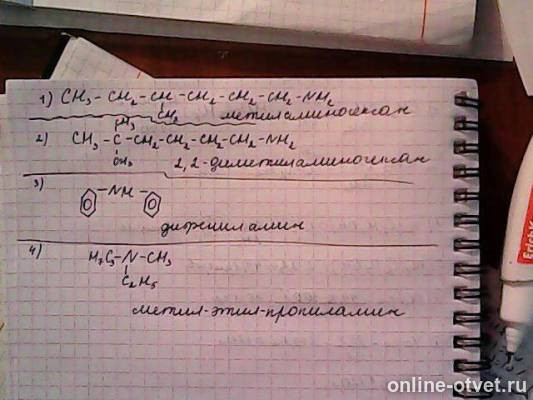 1) CH3 - CH2 - CH - CH2 - CH2 - CH2 - NH2
CH3
метиламиногексан
CH3
2) CH3 - C - CH2 - CH2 - CH2 - CH2 - NH2
CH3
2,2-диметиламиногексан
3)
- NH -
дифениламин
4) H7C3 - N - CH3
C2H5
метил-этил-пропиламин
online-otvet.ru